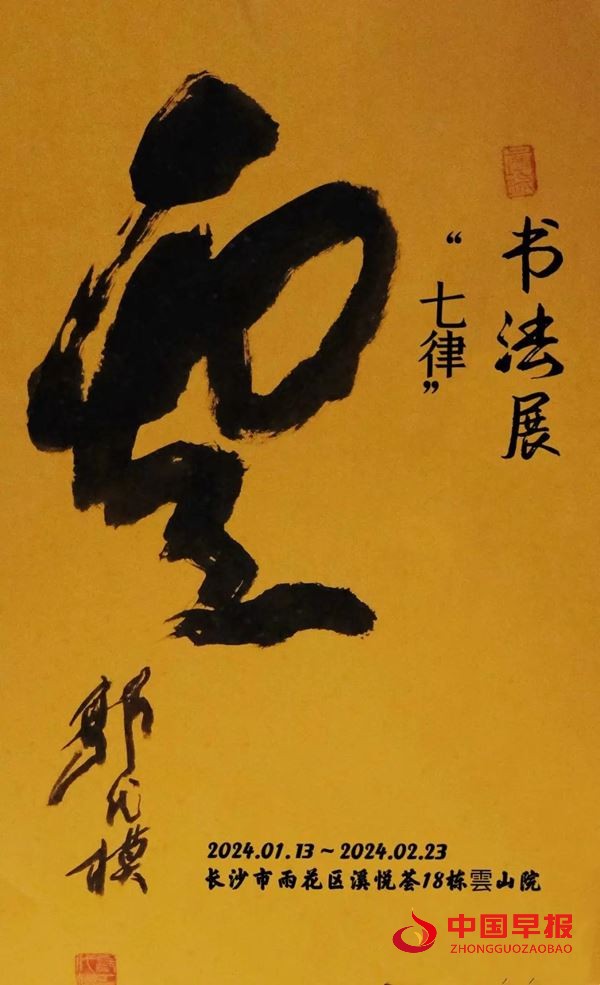 书法展
“七律”
郭代模
2024.01.13～2024.02.23
长沙市雨花区溪悦荟18栋雲山院
中国早报
ZHONGGUOZAOBAO